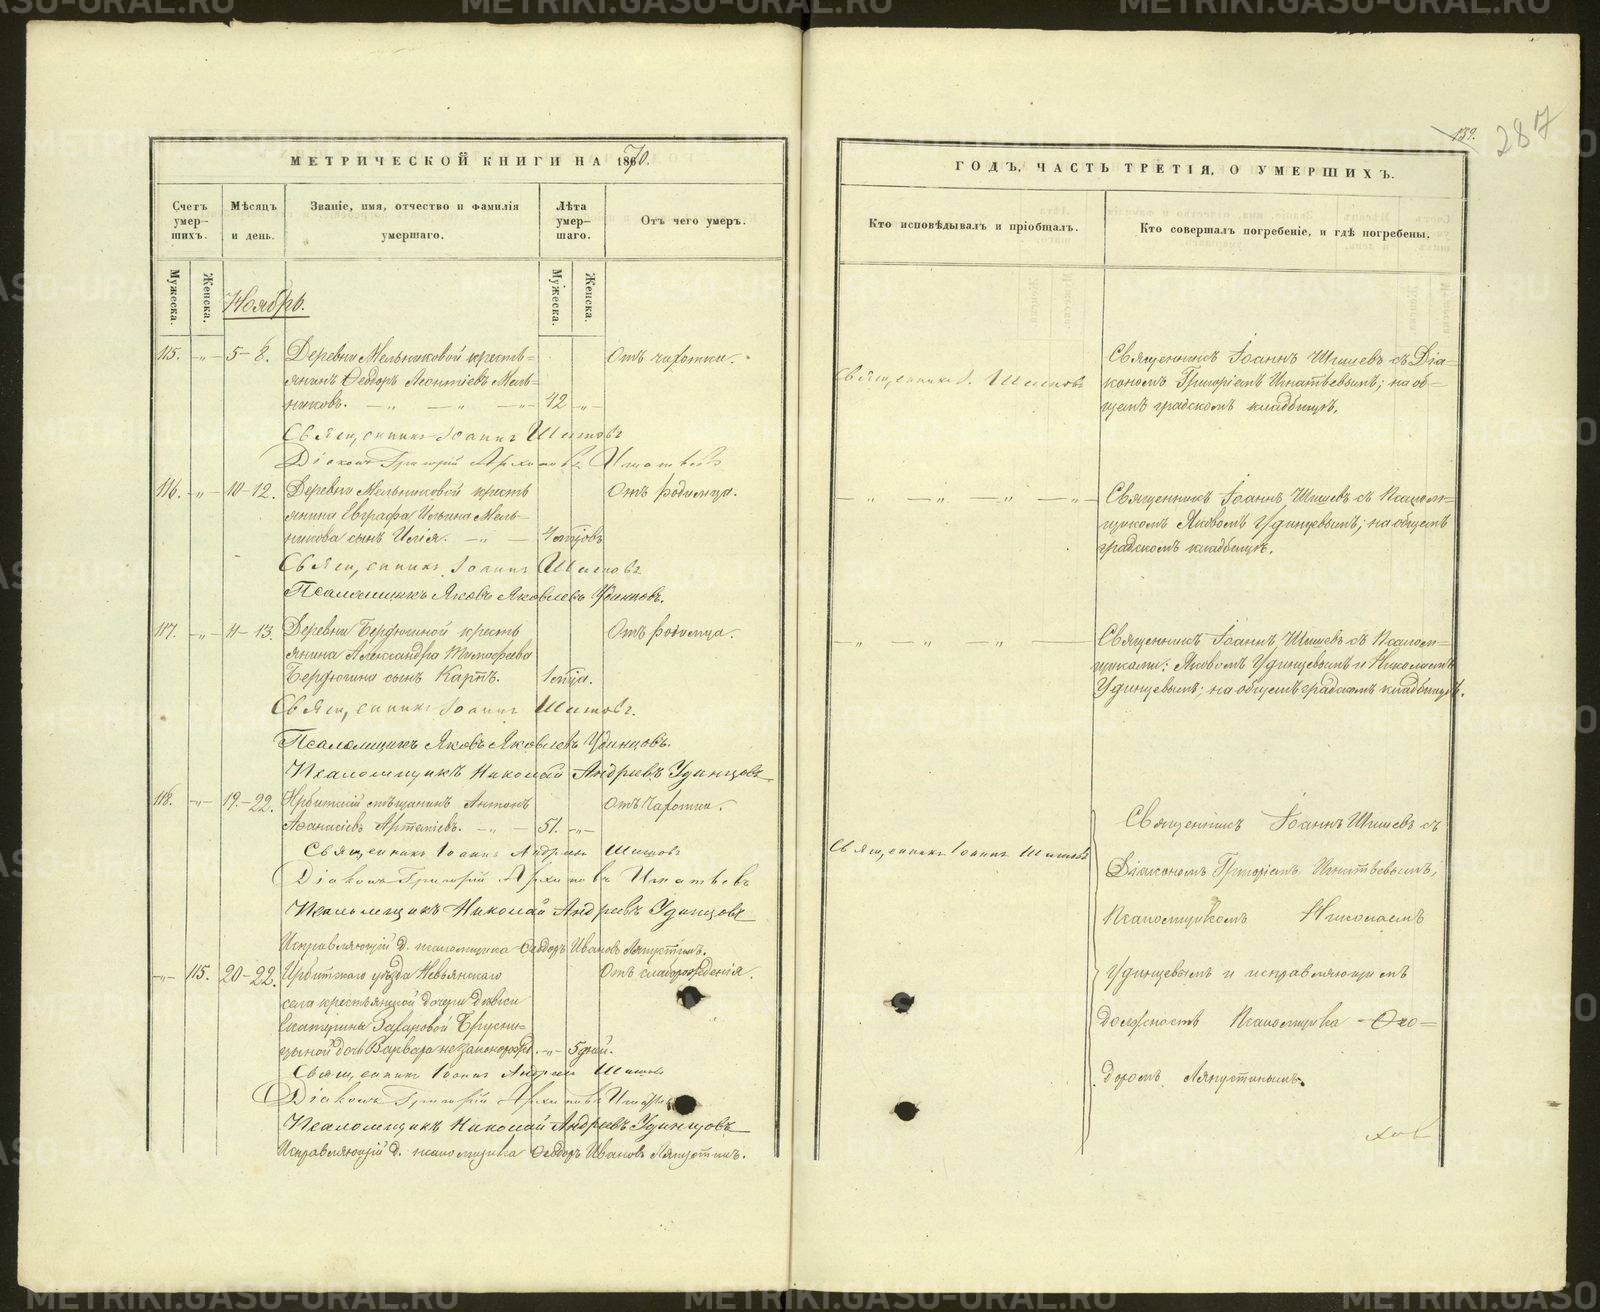 МЕТРИЧЕСКОЙ КНИГИ НА 1870.
Счетъ умер-шихъ.
Мѣсяцъ и день.
Званіе, имя, отчество и фамилія умершаго.
Лѣта умер-шаго.
Отъ чего умеръ.
Мужеска.
Женска.
Мужеска.
Женска.
Ноябрь.
115. -"- 5-8. Деревни Мельниковой кресть= Отъ чахотки.
янинъ Ѳеодоръ Леонтіевъ Мель-
никовъ. -"- -"- -"- 42 -"-
Священникъ Іоаннъ Шишовъ
Діаконъ Григорій Архиповъ Игнатьевъ
116. -"- 10-12. Деревни Мельниковой кресть Отъ родимца.
янина Евграфа Ильина Мель-
никова сынъ Илія. -"- - 4 мѣсяцовъ
Священникъ Іоаннъ Шишовъ
Псаломщикъ Яковъ Яковлевъ Удинцовъ.
117. -"- 11-13. Деревни Бердюгиной кресть Отъ родимца.
янина Александра Тимофеева
Бердюгина сынъ Карпъ. 1 мѣсяца.
Священникъ Іоаннъ Шишовъ.
Псаломщикъ Яковъ Яковлевъ Удинцовъ.
Псаломщикъ Николай Андреевъ Удинцовъ
118. -"- 19-22. Ирбитскій мѣщанинъ Антонъ Отъ чахотки.
Аѳанасіевъ Артеміевъ. -"- - 51. -"-
Священникъ Іоаннъ Андреевъ Шишовъ
Діаконъ Григорій Архиповъ Игнатьевъ
Псаломщикъ Николай Андреевъ Удинцовъ
Исправляющій д. псаломщика Ѳеодоръ Ивановъ Ляпустинъ.
-"- 115. 20-22. Ирбитскаго уѣзда Невьянскаго Отъ слаборожденія.
села крестьянской дочери дѣвки
Екатерины Захаровой Брусни-
цыной дочь Варвара незаконорожд. -"- 5 дней.
Священникъ Іоаннъ Андреевъ Шишовъ
Діаконъ Григорій Архиповъ Игнатьевъ
Псаломщикъ Николай Андреевъ Удинцовъ
Исправляющій д. псаломщика Ѳеодоръ Ивановъ Ляпустинъ.
139. 287
ГОДЪ, ЧАСТЬ ТРЕТІЯ, О УМЕРШИХЪ.
Кто исповѣдывалъ и пріобщалъ.
Кто совершалъ погребеніе, и гдѣ погребены.
Священникъ І. Шишовъ
Священникъ Іоаннъ Шишевъ съ Діа-
кономъ Григоріемъ Игнатьевымъ; на об-
щемъ градскомъ кладбищѣ.
-"- -"- -"- -"-
Священникъ Іоаннъ Шишевъ съ Псалом-
щикомъ Яковомъ Удинцевымъ; на общемъ
градскомъ кладбищѣ.
" " "
Священникъ Іоаннъ Шишевъ съ Псалом-
щиками: Яковомъ Удинцевымъ и Николаемъ
Удинцевымъ; на общемъ градскомъ кладбищѣ.
Священникъ Іоаннъ Шишовъ
Священникъ Іоаннъ Шишевъ съ
Діакономъ Григоріемъ Игнатьевымъ,
Псаломщикомъ Николаемъ
Удинцевымъ и исправляющимъ
должность Псаломщика Ѳео=
доромъ Ляпустинымъ.
METRIKI.GASO-URAL.RU